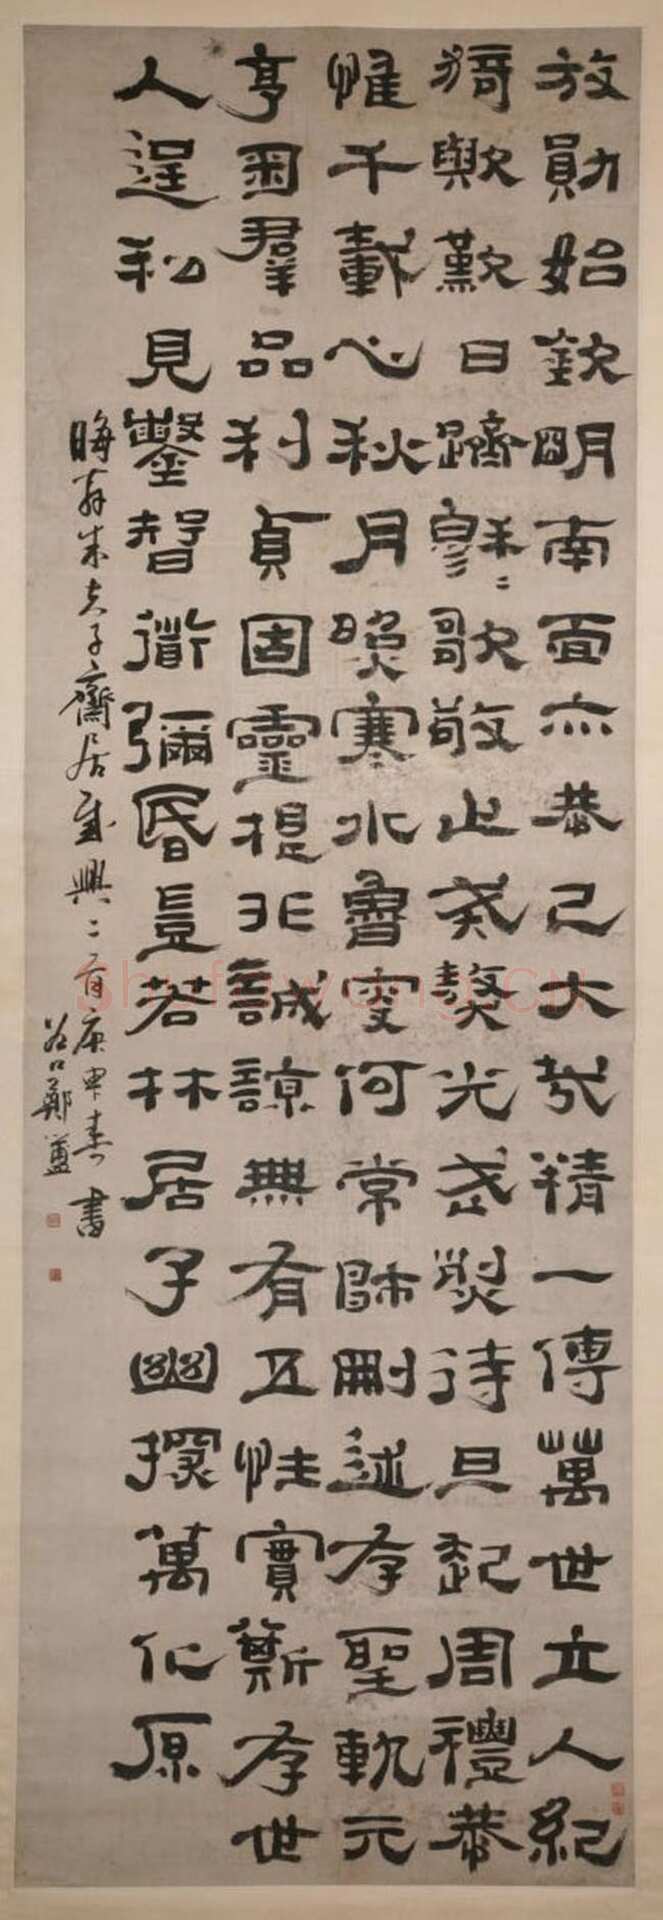 放勛始欽明南面亦恭己大哉精一傳萬世立人紀
猗歟歎日躋穆〻歌敬止戒獒光武烈待旦起周禮恭
惟千載心秋月照寒水魯叟何常師刪述存聖軌元
亨羣品利貞固靈根非誠諒無有五性實斯存世
人逞私見鑿智衜彌昏豈若林居子幽探萬化原
晦菴朱夫子齋居感興二首庚申春書
谷口鄭簠
shufawang.CN